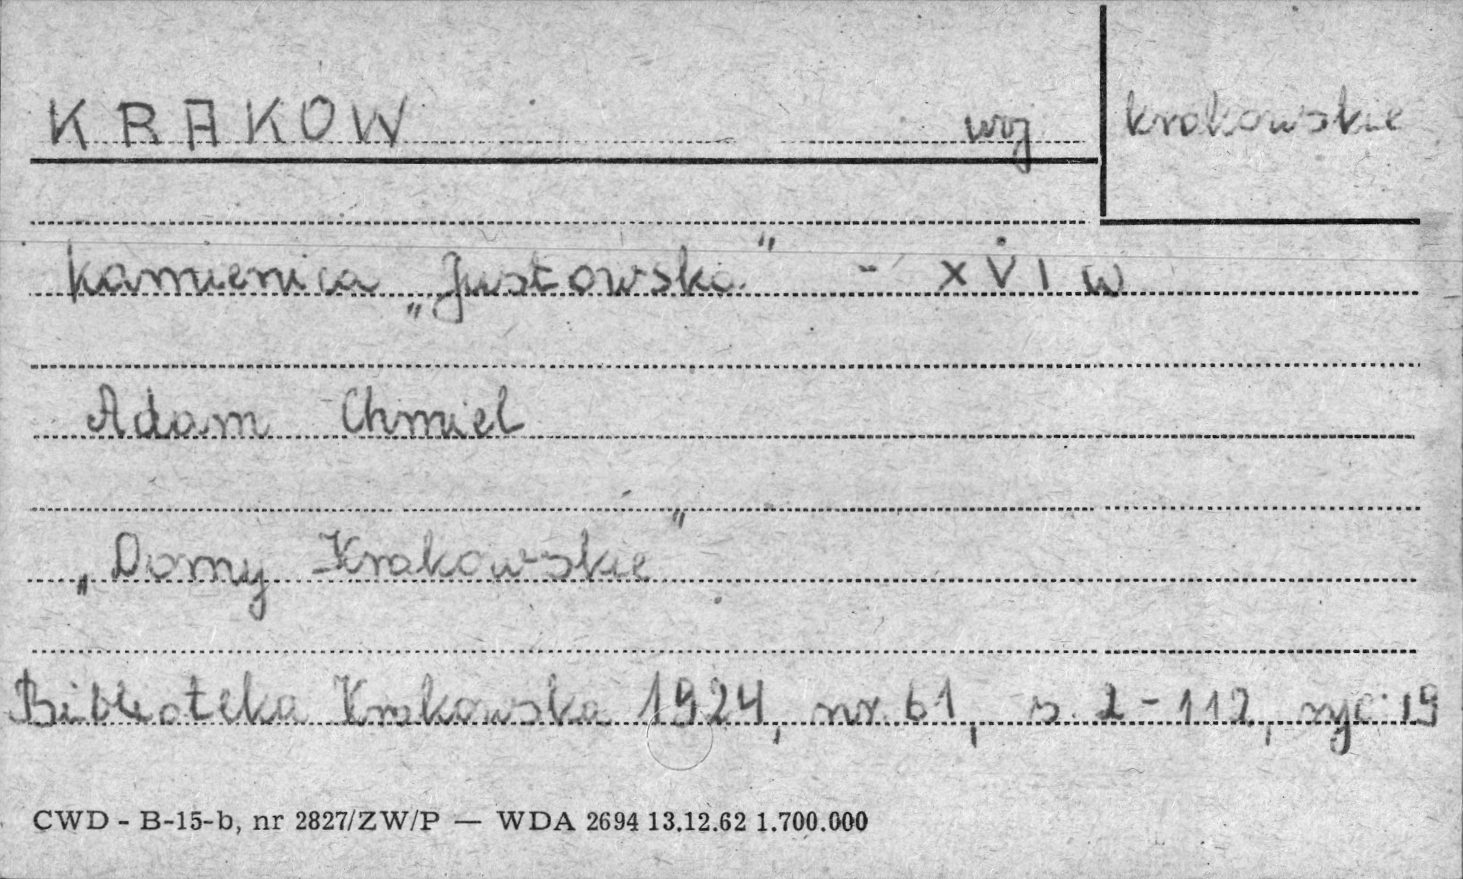 KRAKOW woj krakowskie
kamienica „Justowska" - XVI w
Adam Chmiel
„Domy Krakowskie"
Biblioteka Krakowska 1924, nr. 61, s. 2-112, ryc 19
CWD - B-15-b, nr 2827/ZW/P — WDA 2694 13.12.62 1.700.000